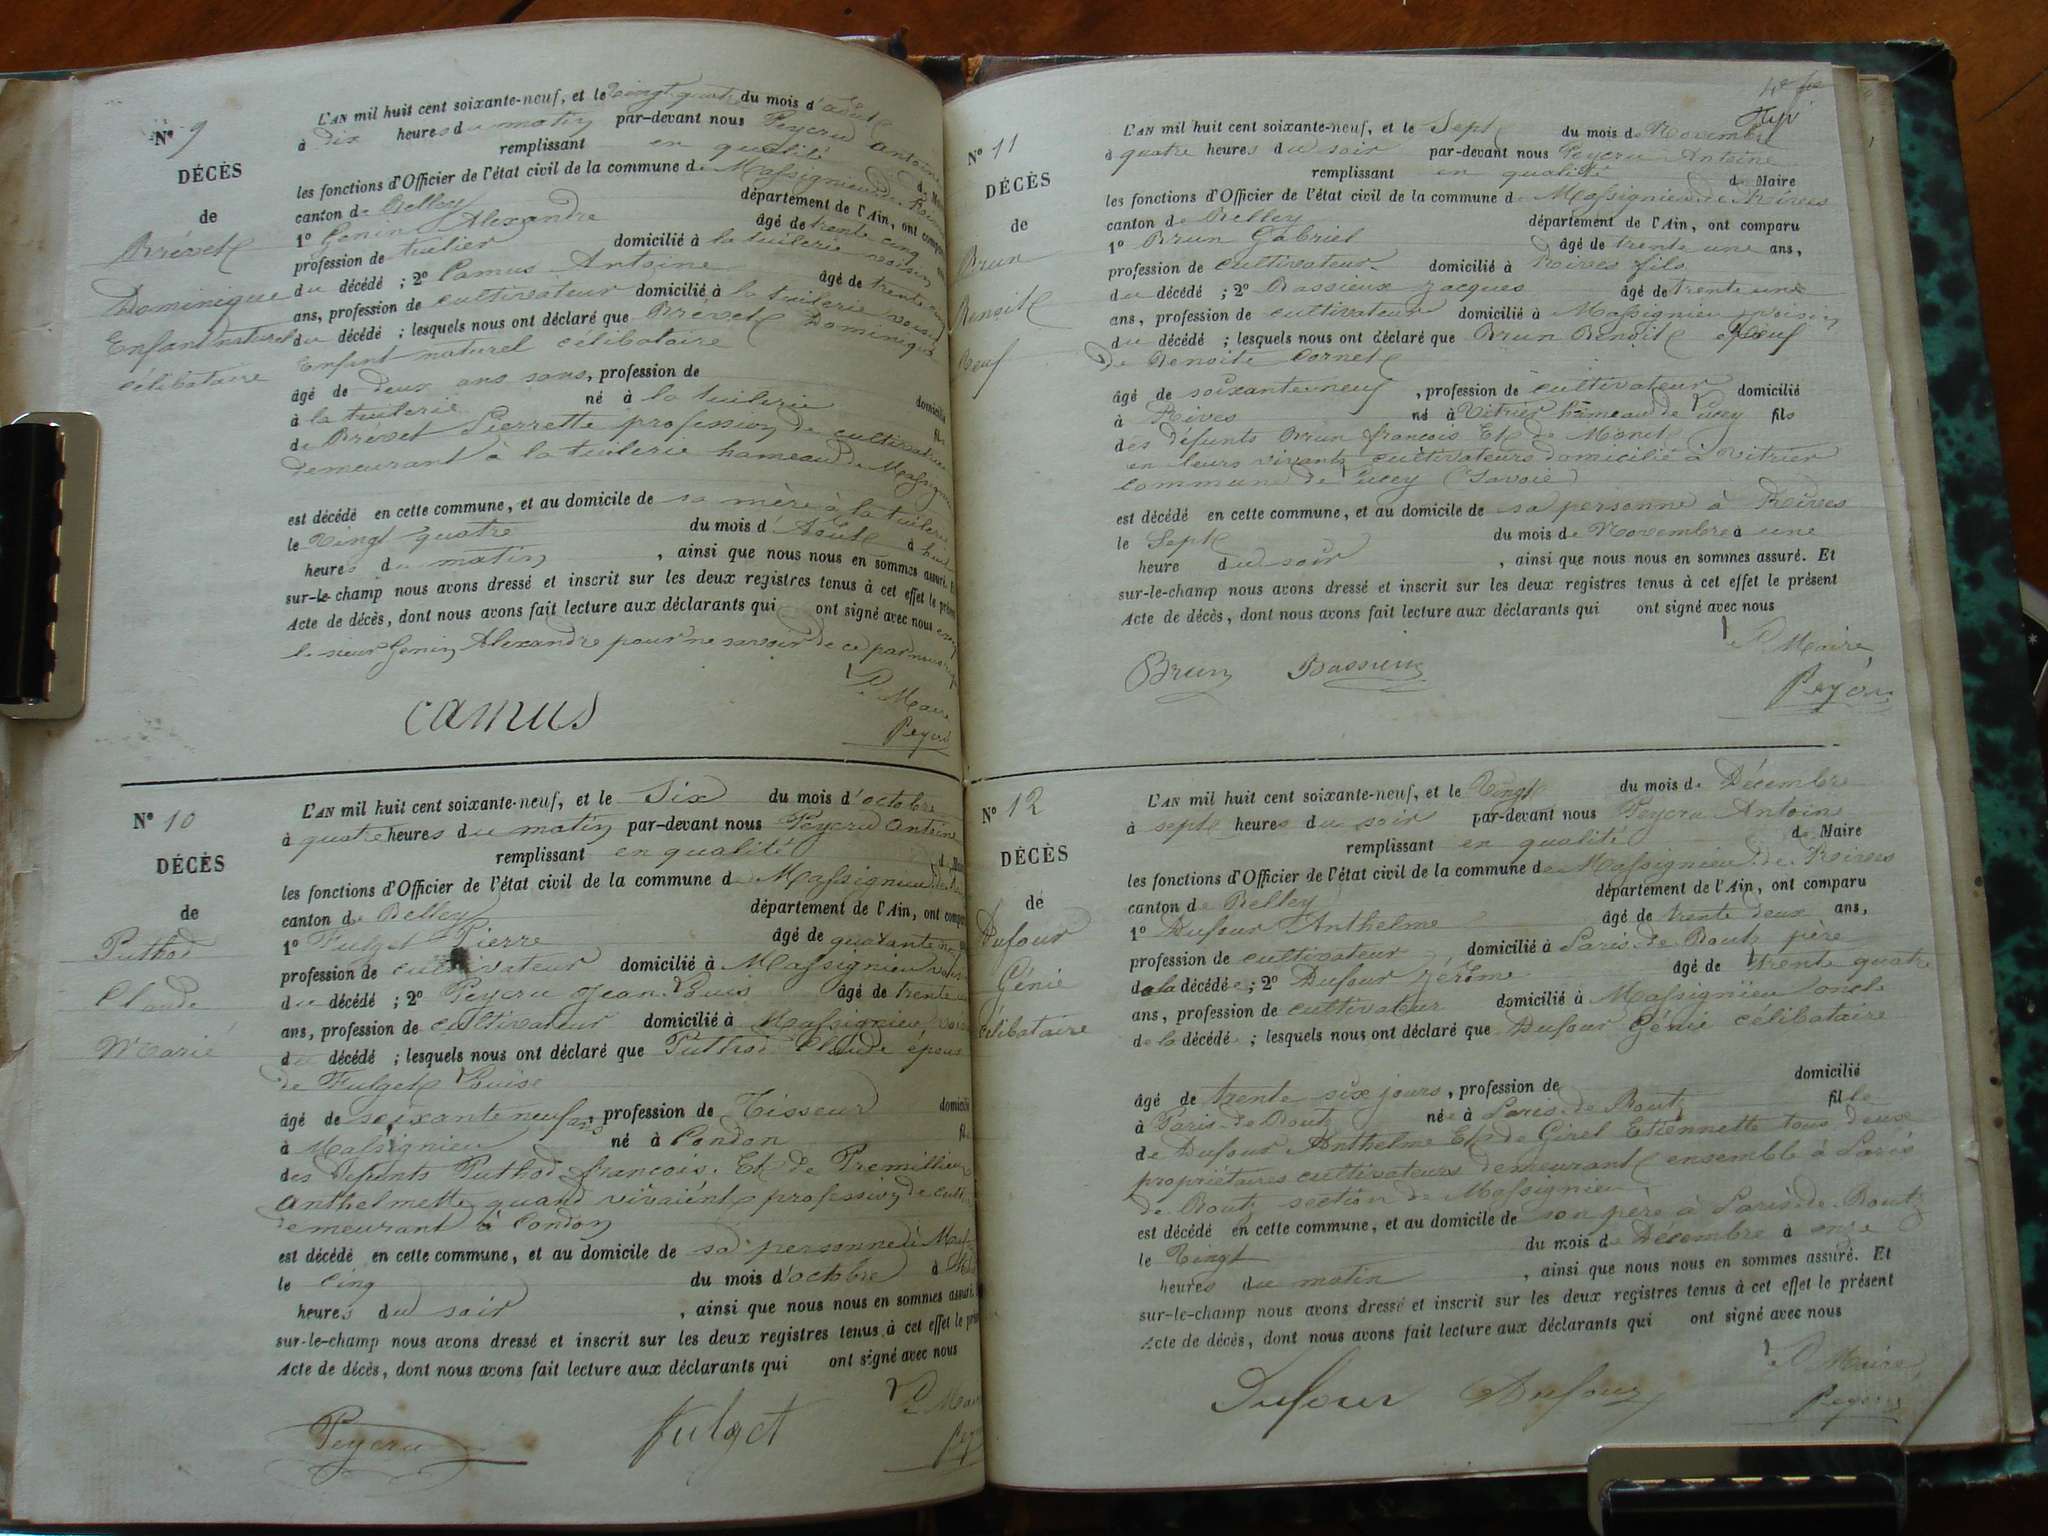 N° 9
DÉCÈS
de
Brévet
Dominique
Enfant naturel
célibataire
L'AN mil huit cent soixante-neuf, et le vingt quatre du mois d'août
à dix heures du matin par-devant nous Peycru Antoine
remplissant en qualité de
les fonctions d'Officier de l'état civil de la commune de Massignieu de Rives
canton de Belley département de l'Ain, ont comparu
1° Genin Alexandre âgé de trente cinq
profession de tuilier domicilié à la tuilerie voisin
du décédé ; 2° Camus Antoine âgé de trente
ans, profession de cultivateur domicilié à la tuilerie voisin
du décédé ; lesquels nous ont déclaré que Brévet Dominique
Enfant naturel célibataire
âgé de deux ans sans, profession de
à la tuilerie né à la tuilerie domicilié
de Brévet Pierrette profession de cultivatrice
demeurant à la tuilerie hameau de Massignieu
est décédé en cette commune, et au domicile de sa mère à la tuilerie
le vingt quatre du mois d'Août à huit
heures du matin, ainsi que nous nous en sommes assuré. Et
sur-le-champ nous avons dressé et inscrit sur les deux registres tenus à cet effet le présent
Acte de décès, dont nous avons fait lecture aux déclarants qui ont signé avec nous
le sieur Genin Alexandre pour ne savoir de ce par nous
Le Maire
camus Peycru
N° 10
DÉCÈS
de
Puthod
Claude
Marié
L'AN mil huit cent soixante-neuf, et le Six du mois d'octobre
à quatre heures du matin par-devant nous Peycru Antoine
remplissant en qualité
les fonctions d'Officier de l'état civil de la commune de Massignieu de
canton de Belley département de l'Ain, ont comparu
1° Fulget Pierre âgé de quarante
profession de cultivateur domicilié à Massignieu voisin
du décédé ; 2° Peycru Jean Louis âgé de trente
ans, profession de cultivateur domicilié à Massignieu voisin
du décédé ; lesquels nous ont déclaré que Puthod Claude époux
de Fulget Louise
âgé de soixante neuf ans, profession de Tisseur domicilié
à Massignieu né à Condon
des défunts Puthod françois Et de Premillieu
Anthelmette quand vivaient profession de
demeurant à Condon
est décédé en cette commune, et au domicile de sa personne à
le Cinq du mois d'octobre à
heures du soir, ainsi que nous nous en sommes assuré.
sur-le-champ nous avons dressé et inscrit sur les deux registres tenus à cet effet le présent
Acte de décès, dont nous avons fait lecture aux déclarants qui ont signé avec nous
Le Maire
Peycru Fulget
N° 11
DÉCÈS
de
Brun
Benoit
Veuf
L'AN mil huit cent soixante-neuf, et le Sept du mois de Novembre
à quatre heures du soir par-devant nous Peycru Antoine
remplissant en qualité de Maire
les fonctions d'Officier de l'état civil de la commune de Massignieu de Rives
canton de Belley département de l'Ain, ont comparu
1° Brun Gabriel âgé de trente une ans,
profession de cultivateur domicilié à Rives fils
du décédé ; 2° Bassieux Jacques âgé de trente une
ans, profession de cultivateur domicilié à Massignieu voisin
du décédé ; lesquels nous ont déclaré que Brun Benoit veuf
de Benoite Cornet
âgé de soixante neuf, profession de cultivateur domicilié
à Rives né à Vitrier hameau de Lucey fils
des défunts Brun françois Et de Monet
en leurs vivants cultivateurs domicilié à Vitrier
commune de Lucey (Savoie)
est décédé en cette commune, et au domicile de sa personne à Rives
le Sept du mois de Novembre à une
heure du soir, ainsi que nous nous en sommes assuré. Et
sur-le-champ nous avons dressé et inscrit sur les deux registres tenus à cet effet le présent
Acte de décès, dont nous avons fait lecture aux déclarants qui ont signé avec nous
Le Maire,
Brun Bassieux Peycru
N° 12
DÉCÈS
de
Dufour
Génie
célibataire
L'AN mil huit cent soixante-neuf, et le Vingt du mois de Décembre
à sept heures du soir par-devant nous Peycru Antoine
remplissant en qualité de Maire
les fonctions d'Officier de l'état civil de la commune de Massignieu de Rives
canton de Belley département de l'Ain, ont comparu
1° Dufour Anthelme âgé de trente deux ans,
profession de cultivateur domicilié à Paris de Bout père
de la décédée ; 2° Dufour Jérôme âgé de trente quatre
ans, profession de cultivateur domicilié à Massignieu oncle
de la décédé ; lesquels nous ont déclaré que Dufour Génie célibataire
âgé de trente six jours, profession de domicilié
à Paris de Bout née à Paris de Bout fille
de Dufour Anthelme Et de Girel Etiennette tous deux
propriétaires cultivateurs demeurant ensemble à Paris
de Bout section de Massignieu
est décédé en cette commune, et au domicile de son père à Paris de Bout
le Vingt du mois de Décembre à onze
heures du matin, ainsi que nous nous en sommes assuré. Et
sur-le-champ nous avons dressé et inscrit sur les deux registres tenus à cet effet le présent
Acte de décès, dont nous avons fait lecture aux déclarants qui ont signé avec nous
Le Maire,
Dufour Dufour Peycru